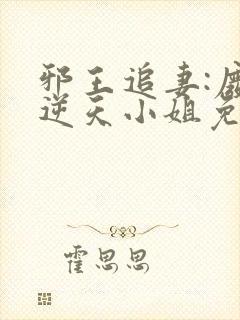 邪王追妻:废
逆天小姐免
霍思思